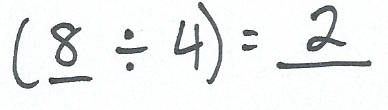 (8 ÷ 4) = 2